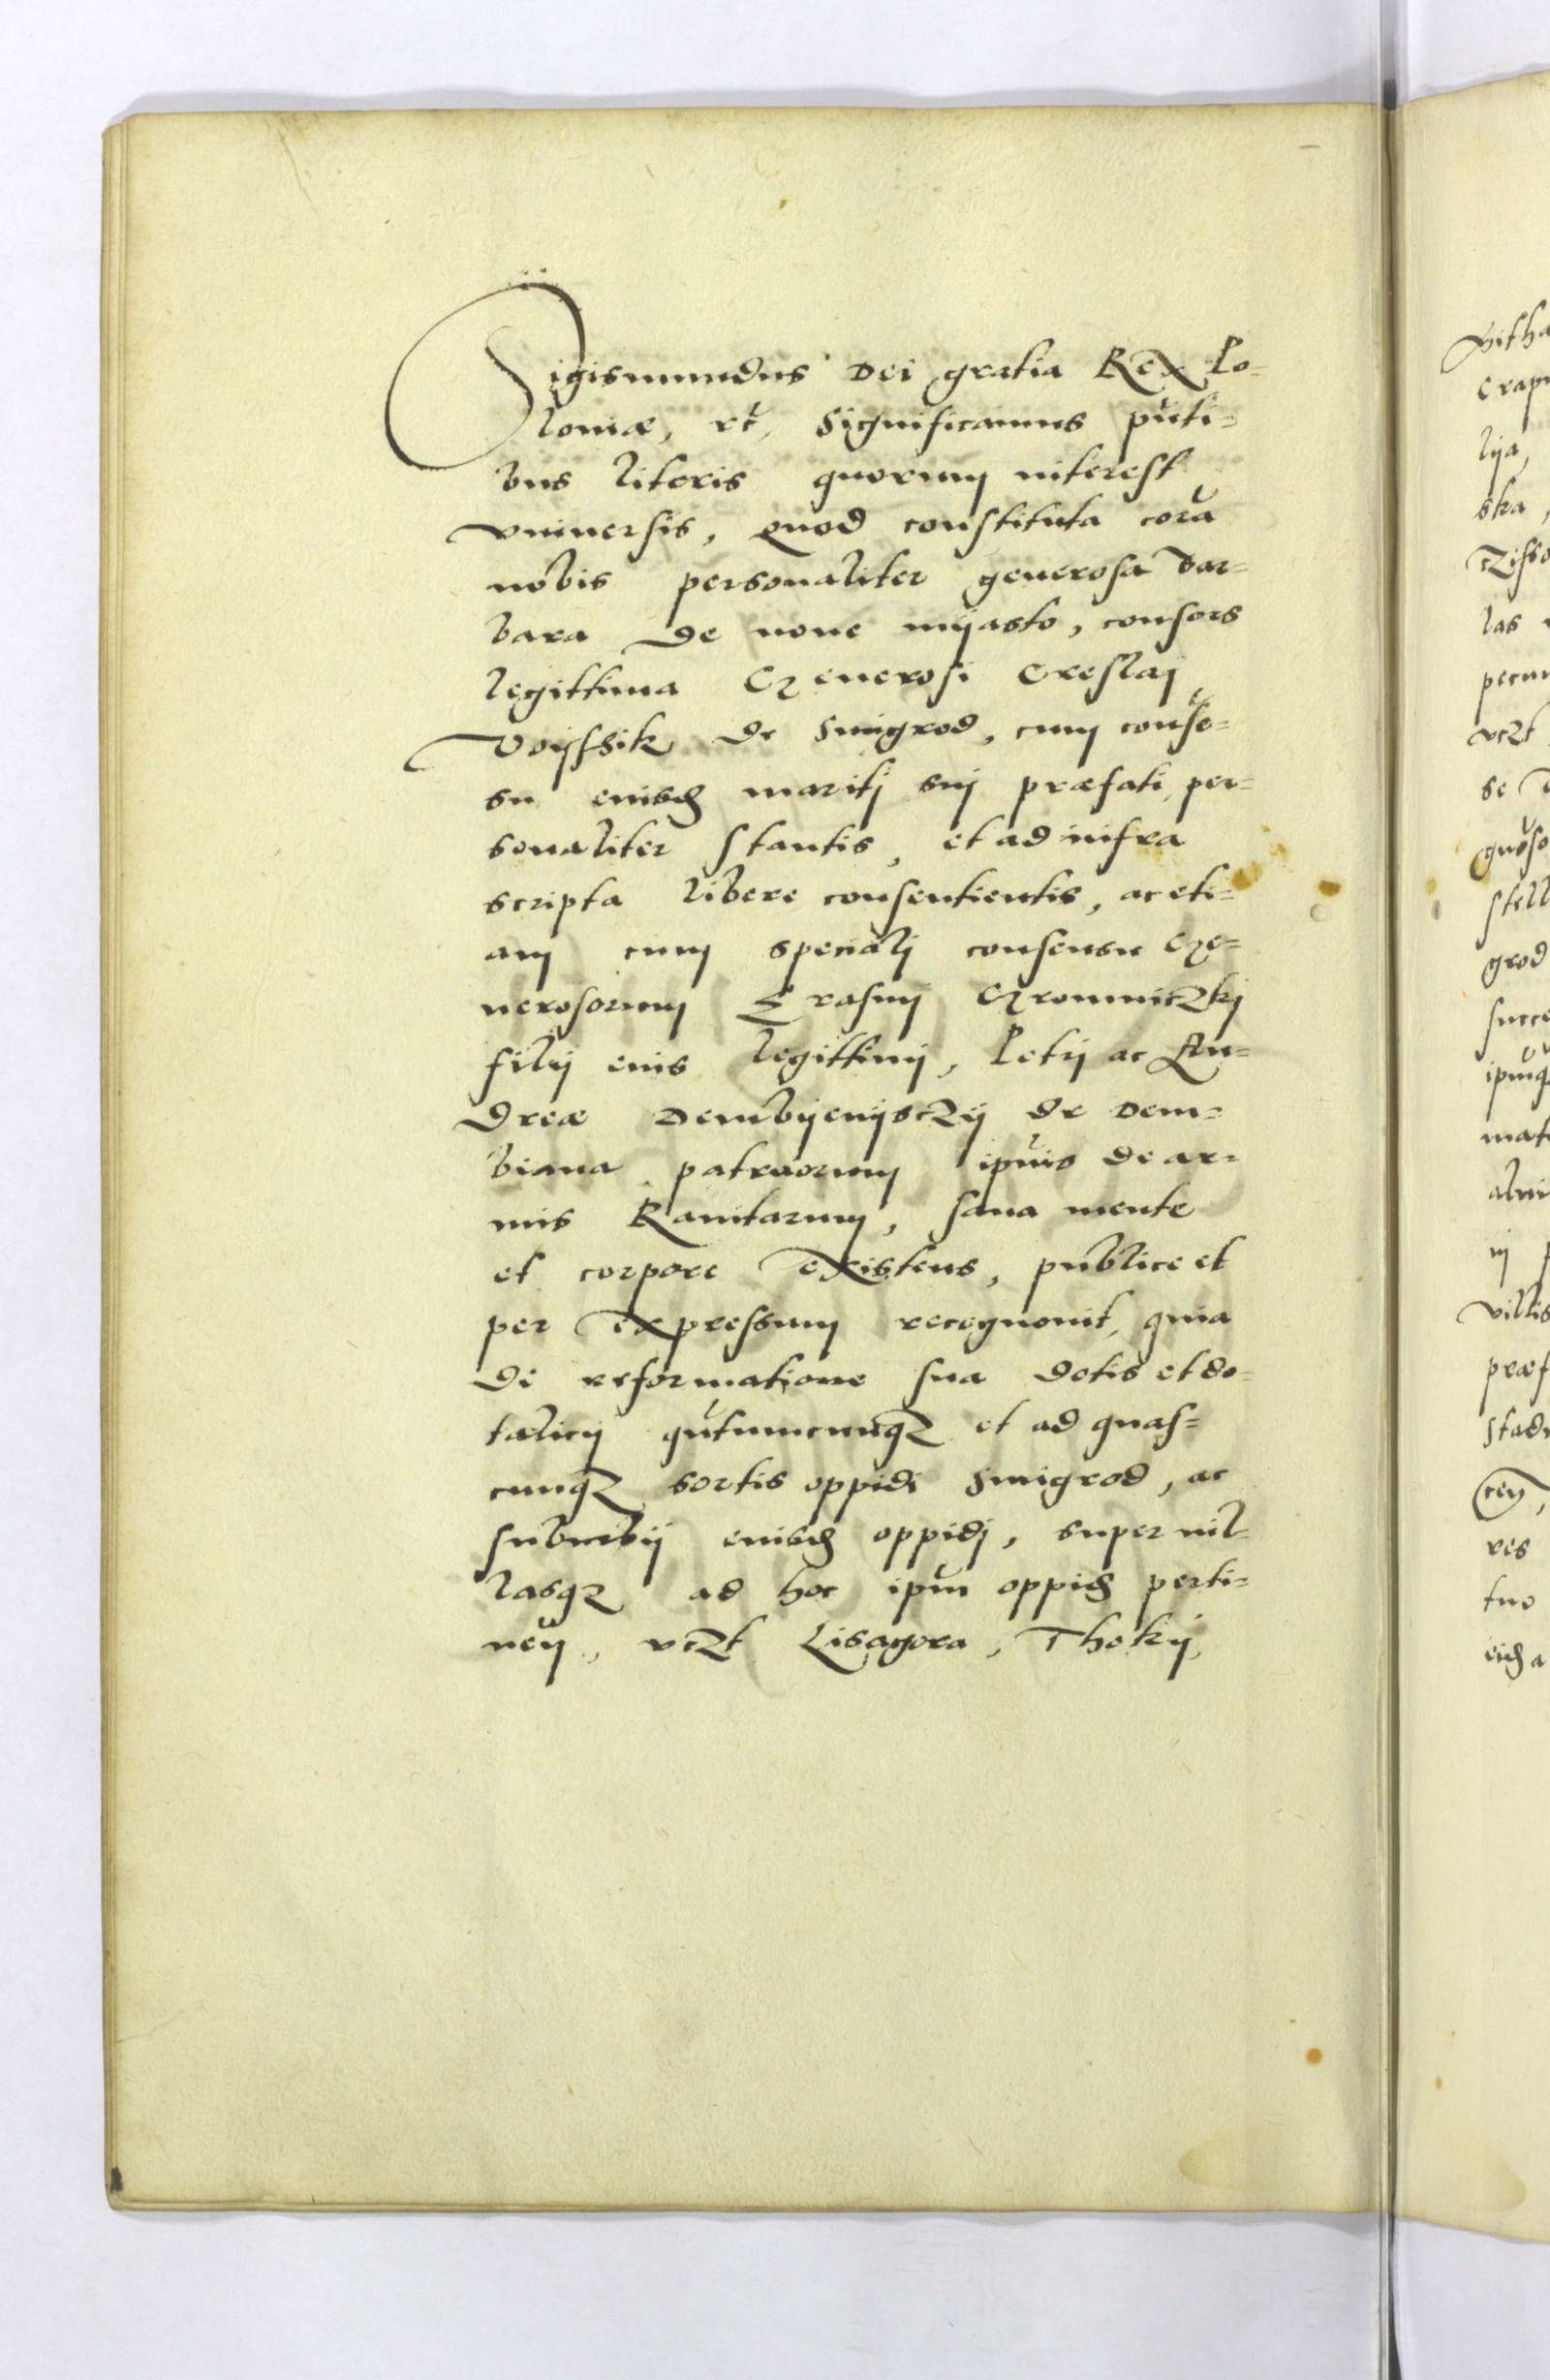 Sigismundus Dei gratia Rex Po-
loniæ, etc̃, Significamus pñti-
bus literis quorum interest
vniuersis, Quod constituta corã
nobis personaliter generosa Bar-
bara de noue myasto, consors
legittima Generosi Creslai
Voijssik de Smigrod, cum consẽ-
su eiusd mariti sui præfati per-
sonaliter stantis, et ad infra
scripta libere consentientis, ac eti-
am cum speciali consensu Ge-
nerosorum Erasmi Gromniczki
filij eius legittimi, Petri ac An-
dreæ Dembyenysczÿ de Dem-
biana patruorum ipũis de ar-
mis Ranitarum, sana mente
et corpore existens, publice et
per expressum recognouit, quia
de reformatione sua dotis et do-
talicij qũtumcunqz et ad quas-
cunqz sortis oppidi Smigrod, ac
suburbij eiusd oppidj, super uil-
lasqz ad hoc ipũm oppid perti-
nẽ, vczt Lisagora, Thoki,
pecun
vczt
grod
ipũmq
villis
præf
res
tuo